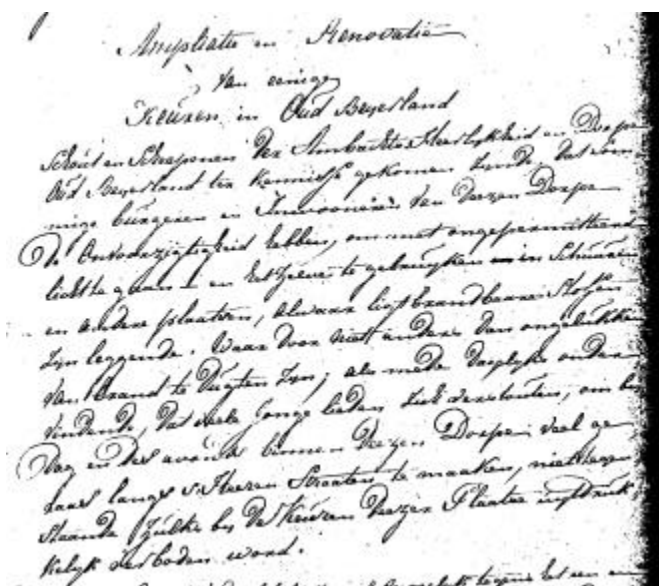 Ampliatie en Renovatie
Van eenige
Keuren in Oud Beyerland
Schout en Schepenen der Ambachts Heerlykheid en Dorpe
Oud Beyerland ter kennisse gekomen zynde, dat som-
mige burgeren en Inwooneren van deezen Dorpe
De Onvoorzigtigheid hebben, om met ongepermitteerd
licht te gaan en hetzelve te gebruyken in Schuuren
en andere plaatsen, alwaar ligt brandbaare Stoffen
zyn leggende. Waar door niet anders dan ongelukken
van Brandt te dugten zyn; als mede daaglyks onder
vindende, dat veele jonge lieden zich verstouten, om by
Dag en des avonds binnen deezen Dorpe veel ge
raas langs 's Heeren Straaten te maaken, niet tegen
staande zulks by de Keuren deezer Plaatse uytdruk
kelyk verboden word.